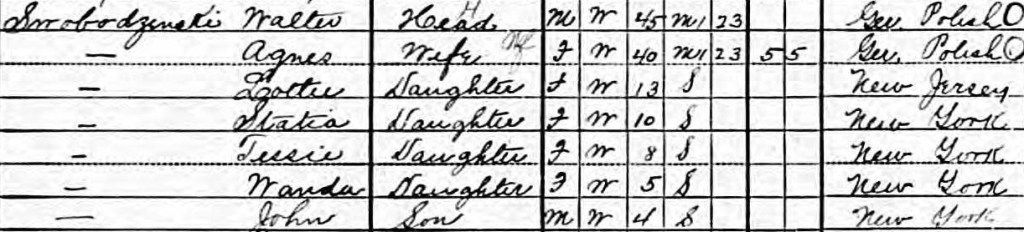 Swobodzenski Walter Head M W 45 M1 23 Ger. Polish O
— Agnes Wife F W 40 M1 23 5 5 Ger. Polish O
— Lottie Daughter F W 13 S New Jersey
— Statia Daughter F W 10 S New York
— Tessie Daughter F W 8 S New York
— Wanda Daughter F W 5 S New York
— John Son M W 4 S New York